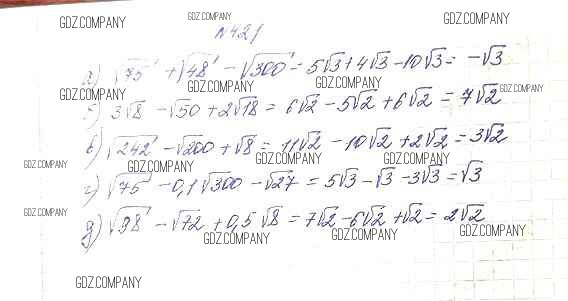 GDZ.COMPANY GDZ.COMPANY GDZ.COMPANY
№421
а) √75 + √48 - √300 = 5√3 + 4√3 - 10√3 = -√3
GDZ.COMPANY GDZ.COMPANY GDZ.COMPANY GDZ.COMPANY
б) 3√8 - √50 + 2√18 = 6√2 - 5√2 + 6√2 = 7√2
в) √242 - √200 + √8 = 11√2 - 10√2 + 2√2 = 3√2
GDZ.COMPANY GDZ.COMPANY GDZ.COMPANY GDZ.COMPANY
г) √75 - 0,1√300 - √27 = 5√3 - √3 - 3√3 = √3
GDZ.COMPANY
д) √98 - √72 + 0,5√8 = 7√2 - 6√2 + √2 = 2√2
GDZ.COMPANY GDZ.COMPANY GDZ.COMPANY
GDZ.COMPANY GDZ.COMPANY